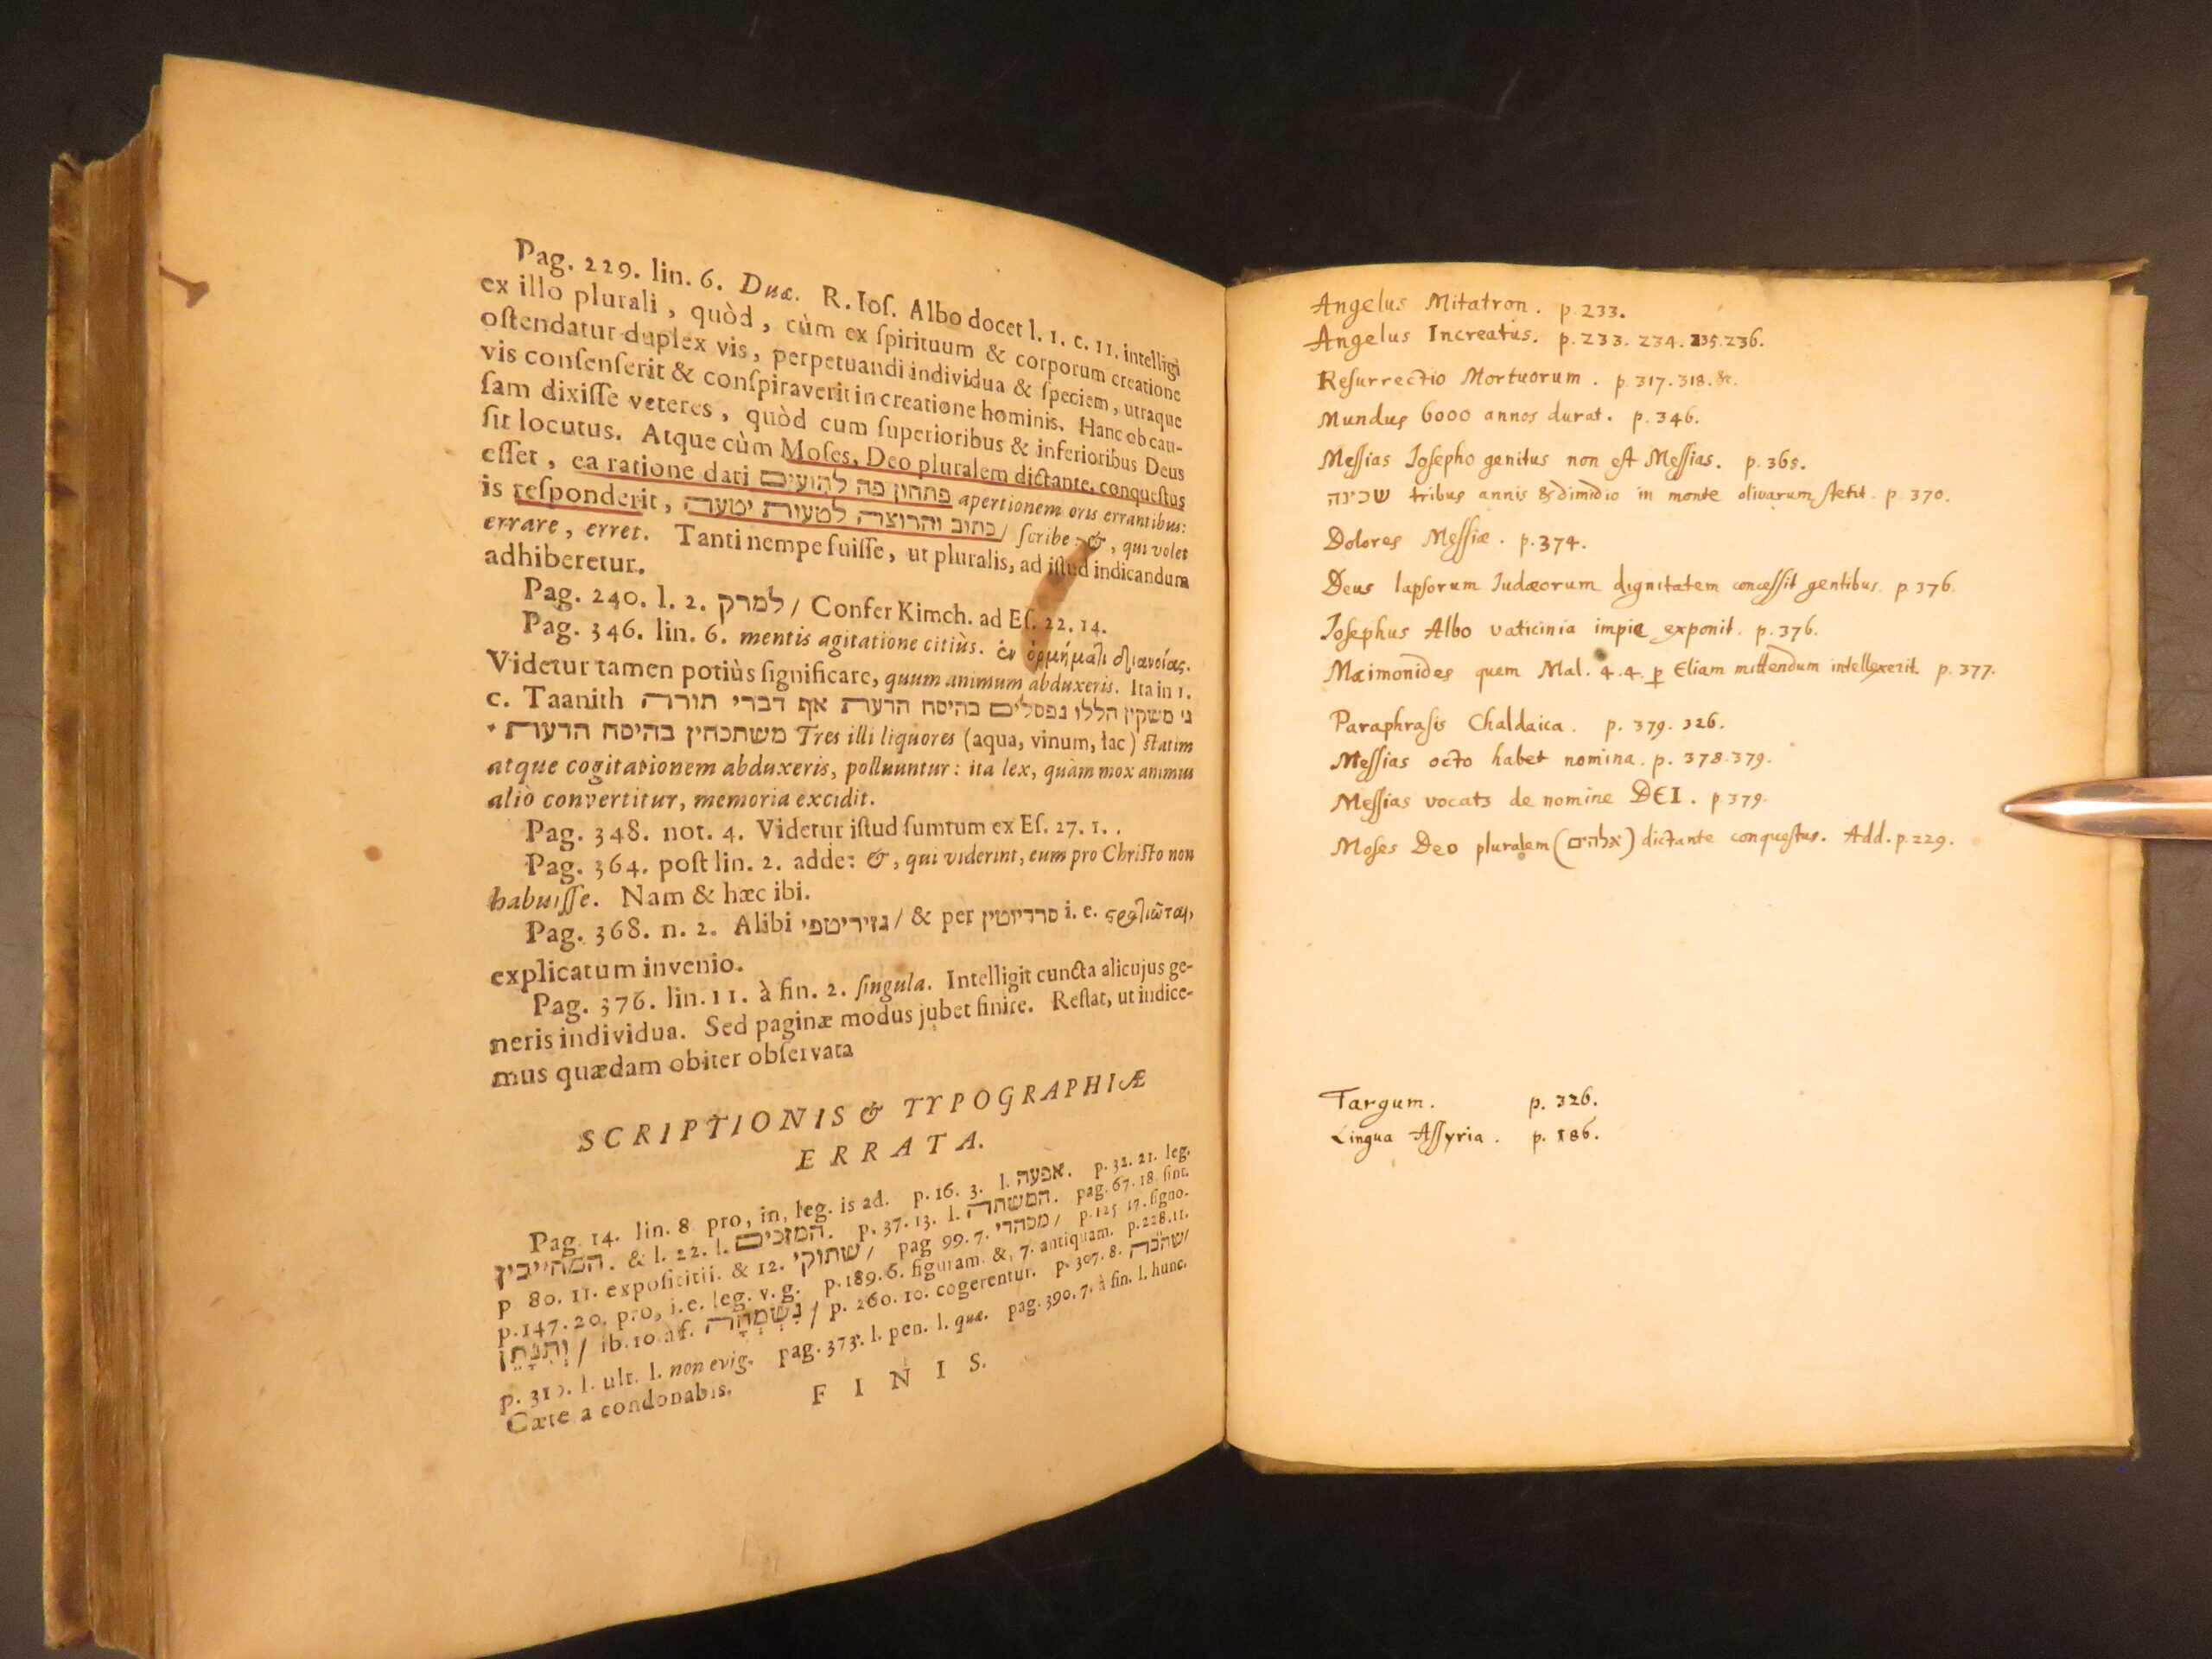 Pag. 229. lin. 6. Duæ. R. Ioſ. Albo docet l. 1. c. 11. intelligi
ex illo plurali, quòd, cùm ex ſpirituum & corporum creatione
oſtendatur duplex vis, perpetuandi individua & ſpeciem, utraque
vis conſenſerit & conſpiraverit in creatione hominis. Hanc ob cau-
ſam dixiſſe veteres, quòd cum ſuperioribus & inferioribus Deus
ſit locutus. Atque cùm Moſes, Deo pluralem dictante, conqueſtus
eſſet, ea ratione dari פתחון פה לתועים apertionem oris errantibus:
is reſponderit, כתוב והרוצה לטעות יטעה / ſcribe: &, qui volet
errare, erret. Tanti nempe fuiſſe, ut pluralis, ad iſtud indicandum
adhiberetur.
Pag. 240. l. 2. למרק / Confer Kimch. ad Eſ. 22. 14.
Pag. 346. lin. 6. mentis agitatione citiùs. ἐν ὁρμήματι διανοίας.
Videtur tamen potiùs ſignificare, quum animum abduxeris. Ita in 1.
c. Taanith ג׳ משקין הללו נפסלים בהיסח הדעת אף דברי תורה
משתכחין בהיסח הדעת * Tres illi liquores (aqua, vinum, lac) ſtatim
atque cogitationem abduxeris, polluuntur: ita lex, quàm mox animus
aliò convertitur, memoria excidit.
Pag. 348. not. 4. Videtur iſtud ſumtum ex Eſ. 27. 1. .
Pag. 364. poſt lin. 2. adde: &, qui viderint, eum pro Chriſto non
habuiſſe. Nam & hæc ibi.
Pag. 368. n. 2. Alibi גזיריטפי / & per סרדיוטין i. e. ςρατιῶται,
explicatum invenio.
Pag. 376. lin. 11. à fin. 2. ſingula. Intelligit cuncta alicujus ge-
neris individua. Sed paginæ modus jubet finire. Reſtat, ut indice-
mus quædam obiter obſervata
SCRIPTIONIS & TYPOGRAPHIÆ
ERRATA.
Pag. 14. lin. 8 pro, in, leg. is ad. p. 16. 3. l. אפעה. p. 32. 21. leg.
המחייבין. & l. 22. l. המזכים. p. 37. 13. l. המשתה. pag. 67. 18. ſint.
p 80. 11. expoſititii. & 12. שתוקי / pag 99. 7. מכהרי / p. 125 17. ſigno.
p. 147. 20. pro, i.e. leg. v. g. p. 189. 6. figuram. &, 7. antiquam. p. 228. 11.
/ ib. 10 à f. נשמחה / p. 260. 10. cogerentur. p. 307. 8.
l. ult. l. non evig. pag. 373. l. pen. l. quæ. pag. 390. 7. à fin. l. hunc.
Cæte a condonabis.
FINIS.
Angelus Mitatron. p. 233.
Angelus Increatus. p. 233. 234. 235. 236.
Reſurrectio Mortuorum. p. 317. 318. &c.
Mundus 6000 annos durat. p. 346.
Meſſias Joſepho genitus non eſt Meſſias. p. 365.
שכינה tribus annis & dimidio in monte olivarum ſtetit. p. 370.
Dolores Meſſiæ. p. 374.
Deus lapſorum Judæorum dignitatem conceſſit gentibus. p. 376.
Joſephus Albo vaticinia impie exponit. p. 376.
Maimonides quem Mal. 4. 4. p Eliam mittendum intellexerit. p. 377.
Paraphraſis Chaldaica. p. 379. 326.
Meſſias octo habet nomina. p. 378. 379.
Meſſias vocatꝫ de nomine DEI. p 379.
Moſes Deo pluralem (אלהים) dictante conqueſtus. Add. p. 229.
Targum. p. 326.
Lingua Aſſyria. p. 186.